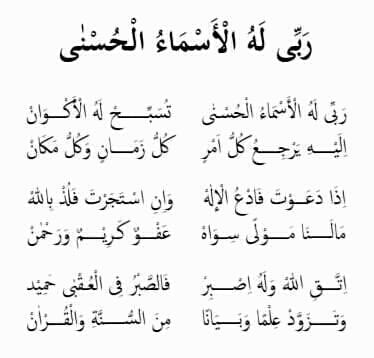 رَبِّى لَهُ الْأَسْمَاءُ الْحُسْنٰى
رَبِّى لَهُ الْأَسْمَاءُ الْحُسْنٰى تُسَبِّحُ لَهُ الْأَكْوَانْ
اِلَيْهِ يَرْجِعُ كُلُّ اَمْرٍ كُلُّ زَمَانٍ وَكُلُّ مَكَانْ
اِذَا دَعَوْتَ فَادْعُ الْإِلٰهْ وَاِنِ اسْتَجَرْتَ فَلُذْ بِاللهْ
مَالَنَا مَوْلًى سِوَاهْ عَفْوٌ كَرِيْمٌ وَرَحْمٰنْ
اِتَّقِ اللهْ وَلَهُ اِصْبِرْ فَالصَّبْرُ فِى الْعُقْبٰى حَمِيْد
وَتَزَوَّدْ عِلْمًا وَبَيَانًا مِنَ السُّنَّةِ وَالْقُرْاٰنْ